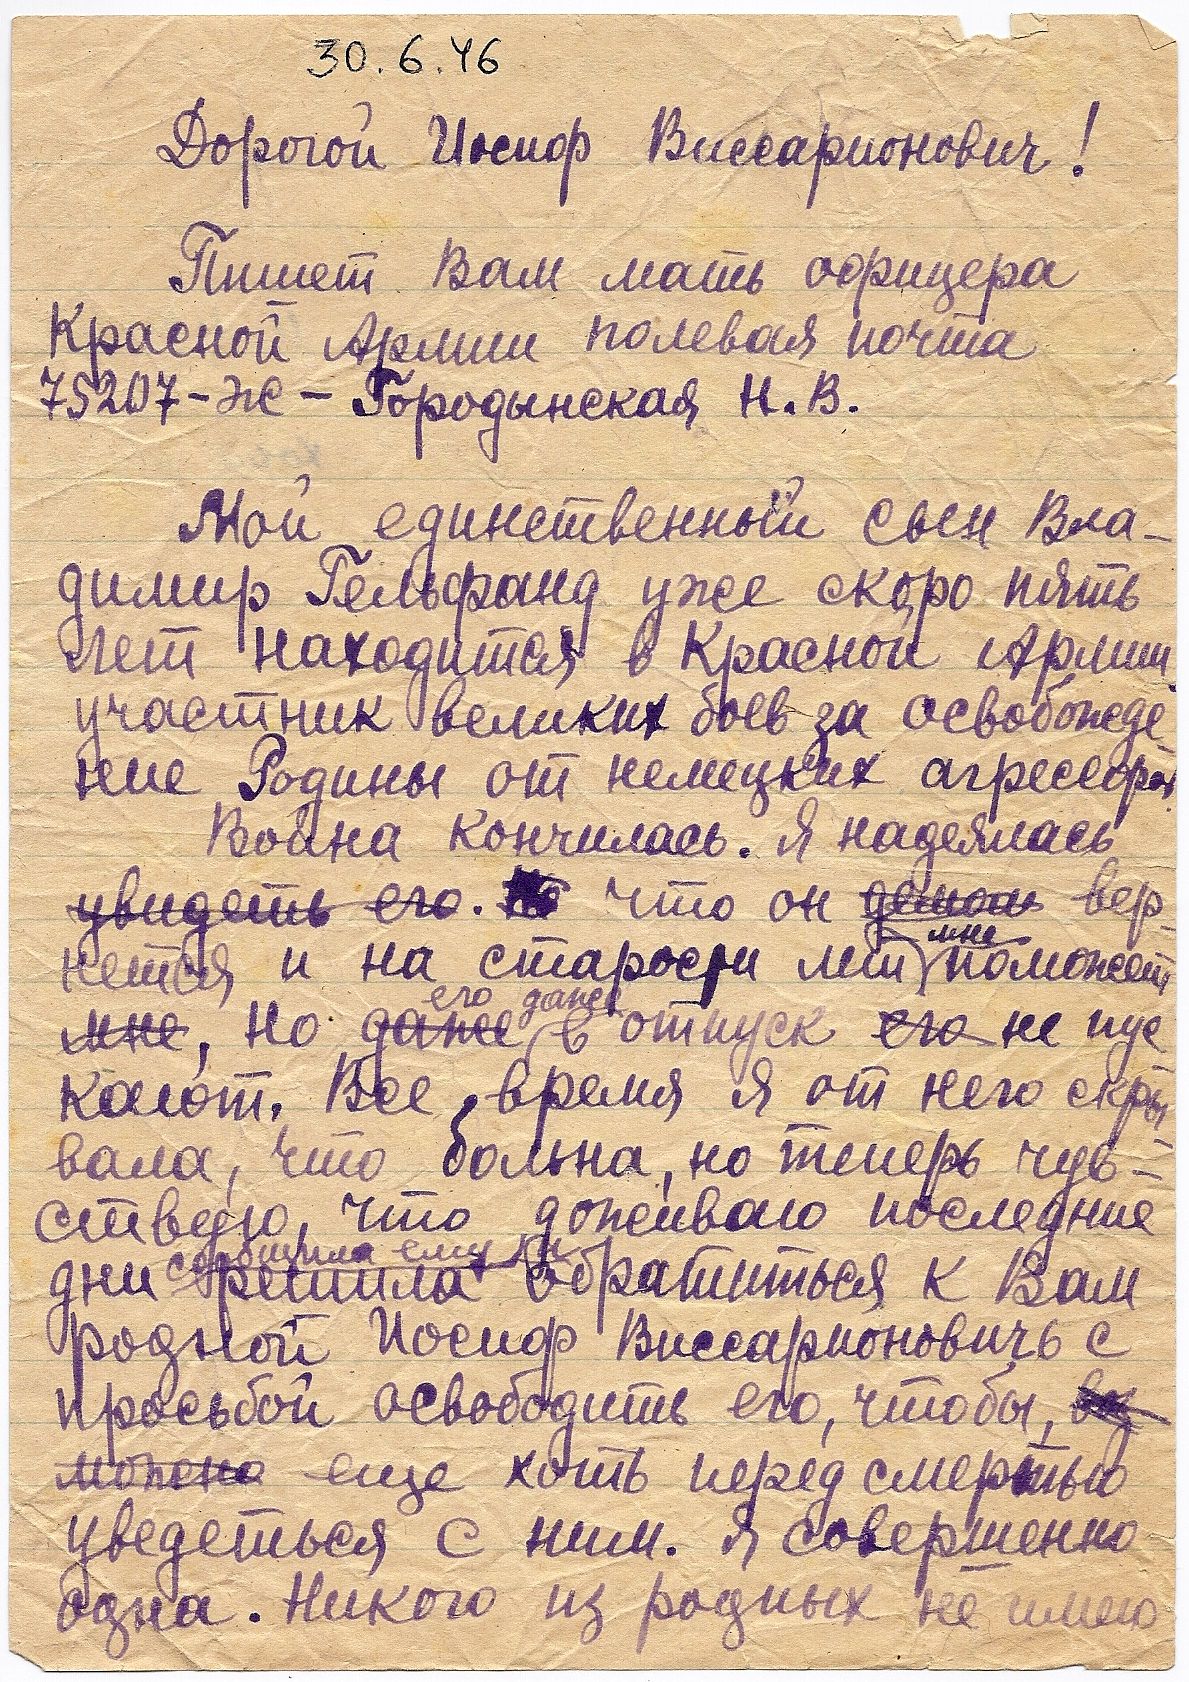 30.6.46
Дорогой Иосиф Виссарионович!
Пишет Вам мать офицера
Красной Армии полевая почта
75207-Ж – Городынская Н.В.
Мой единственный сын Вла-
димир Гельфанд уже скоро пять
лет находится в Красной Армии
участник великих боев за освобожде-
ние Родины от немецких агрессоров
Война кончилась. Я надеялась
увидеть его. что он вер-
нется и на старости мне поможет
его даже
мне, но даже в отпуск его не пус
кают. Все время я от него скры
вала, что больна, но теперь чув-
ствую, что доживаю последние
сообщила ему и
дни решила обратиться к Вам
родной Иосиф Виссарионовичь с
просьбой освободить его, чтобы,
можно еще хоть перед смертью
уведеться с ним. Я совершенно
одна. Никого из родных не имею